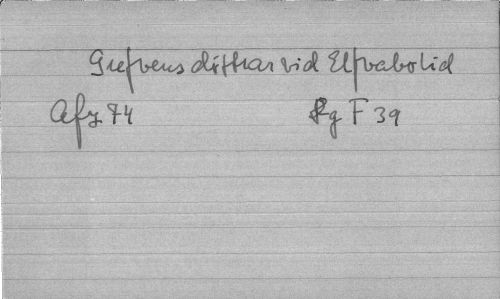 Grefvens dittrar vid Elfvabolid
Afz 74 Rg F 39